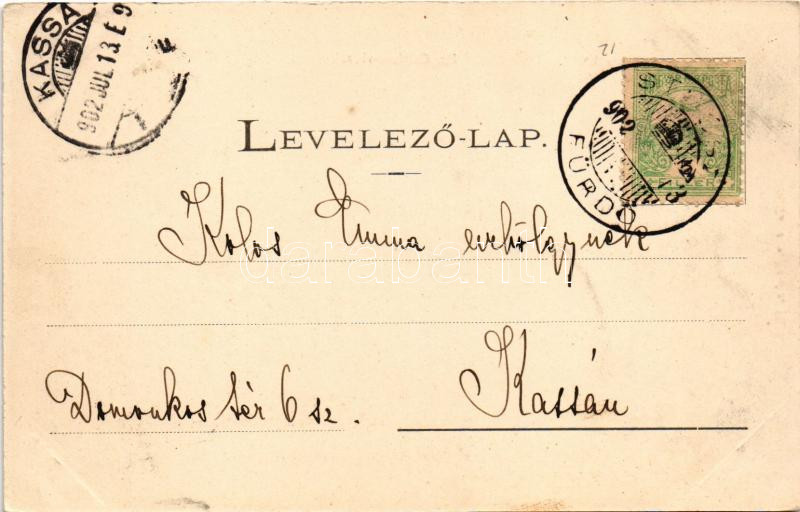 KASSA
902 JUL 13 É 9
LEVELEZŐ-LAP.
902
13
FÜRDŐ
Kolos Emma úrhölgynek
Domonkos tér 6 sz.
Kassán
darabanth